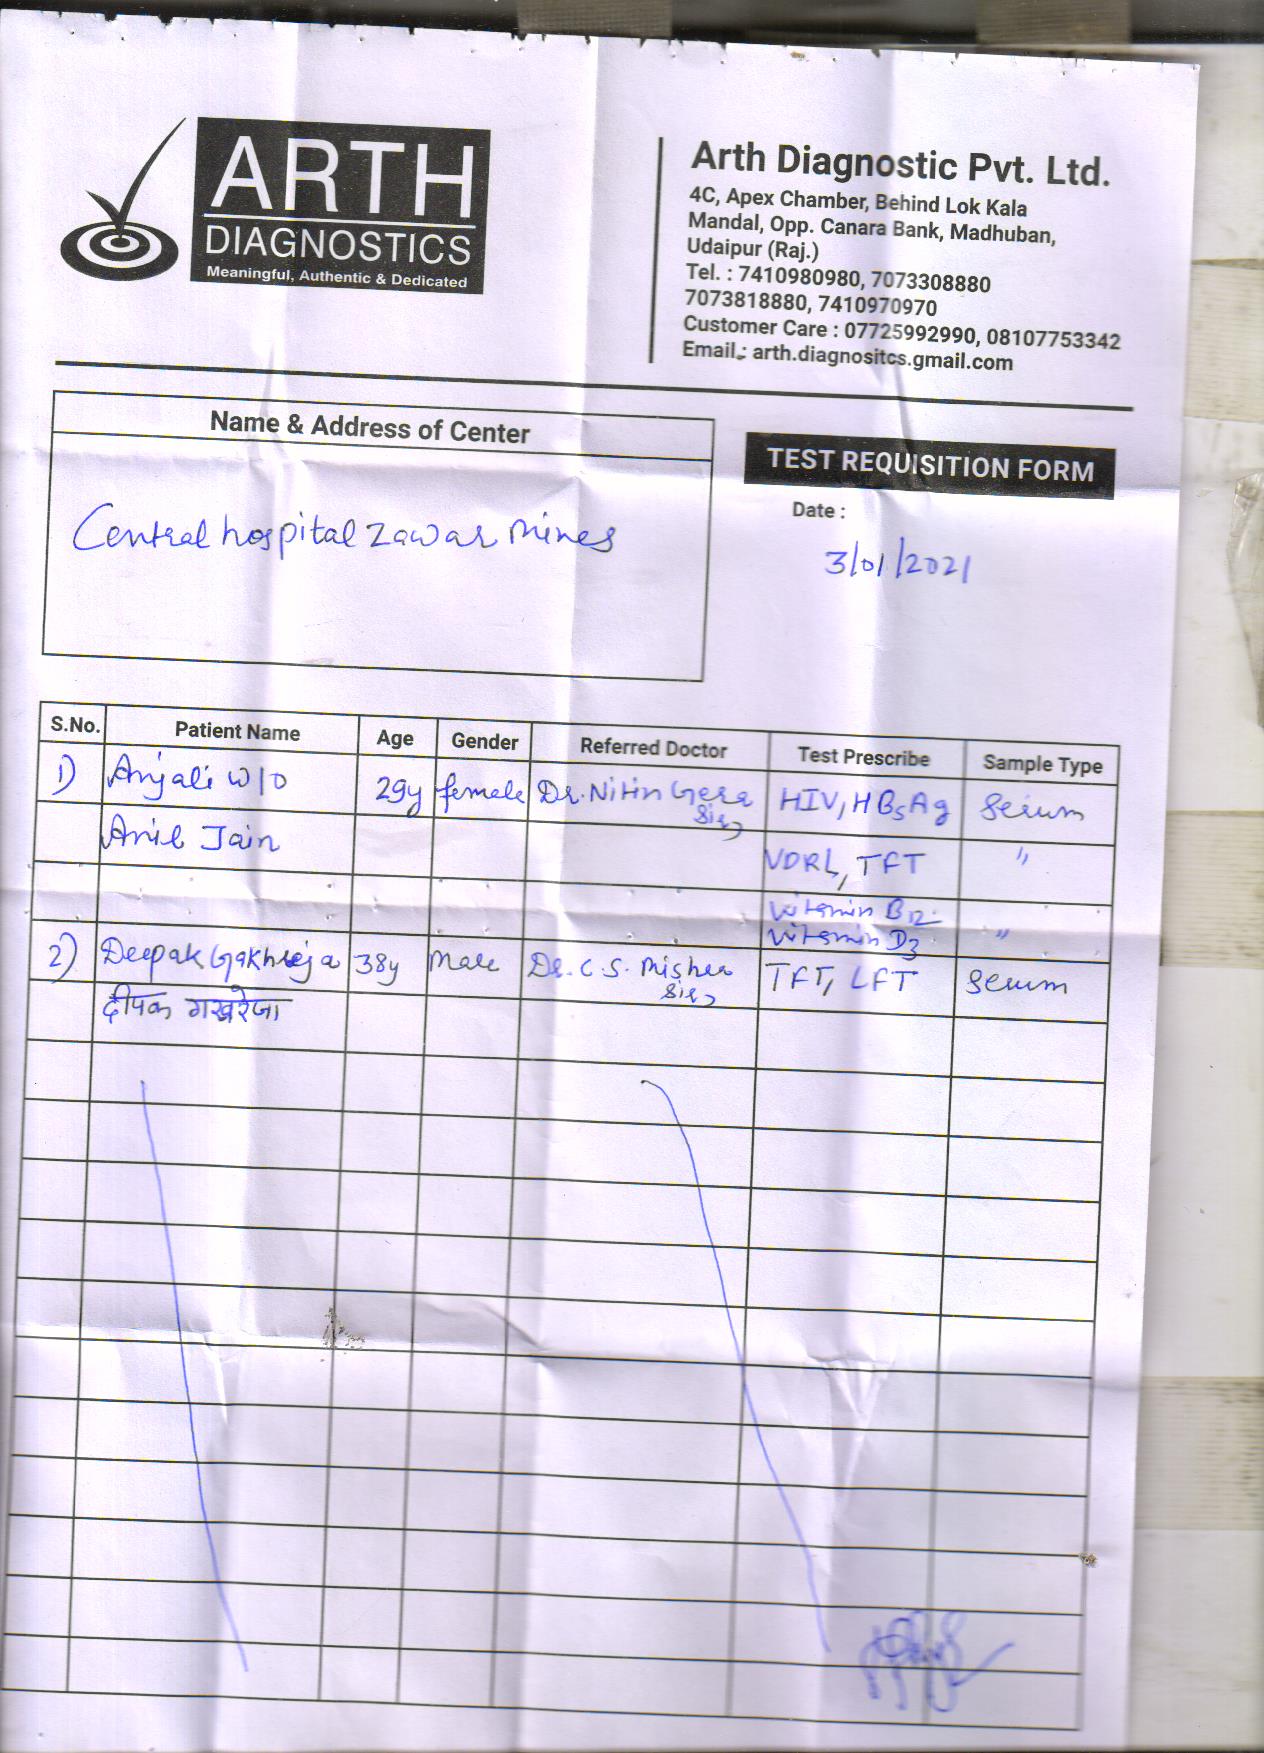 ARTH
DIAGNOSTICS
Meaningful, Authentic & Dedicated
Arth Diagnostic Pvt. Ltd.
4C, Apex Chamber, Behind Lok Kala
Mandal, Opp. Canara Bank, Madhuban,
Udaipur (Raj.)
Tel. : 7410980980, 7073308880
7073818880, 7410970970
Customer Care : 07725992990, 08107753342
Email.: arth.diagnositcs.gmail.com
Name & Address of Center
Central hospital Zawar mines
TEST REQUISITION FORM
Date :
3/01/2021
S.No. Patient Name Age Gender Referred Doctor Test Prescribe Sample Type
1) Anjali W/O 29y female Dr. Nitin Gera Sir HIV, HBsAg Serum
Anil Jain VDRL, TFT "
Vitamin B12
Vitamin D3 "
2) Deepak Gakhreja 38y Male Dr. C S. Mishra Sir TFT, LFT Serum
दीपक गखरेजा